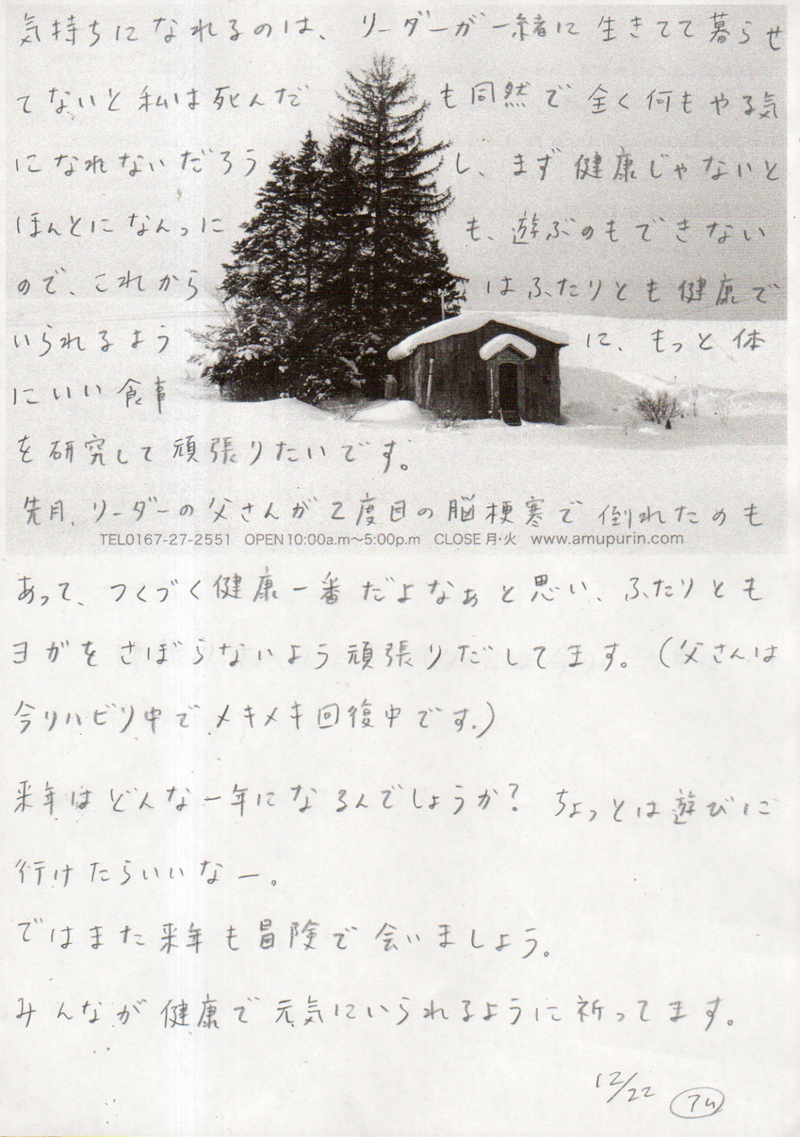 気持ちになれるのは、リーダーが一緒に生きてて暮らせ
てないと私は死んだも同然で全く何もやる気
になれないだろうし、まず健康じゃないと
ほんとになんっにも、遊ぶのもできない
ので、これからはふたりとも健康で
いられるように、もっと体
にいい食事
を研究して頑張りたいです。
先月、リーダーの父さんが2度目の脳梗塞で倒れたのも
TEL0167-27-2551 OPEN10:00a.m〜5:00p.m CLOSE月・火 www.amupurin.com
あって、つくづく健康一番だよなぁと思い、ふたりとも
ヨガをさぼらないよう頑張りだしてます。(父さんは
今リハビリ中でメキメキ回復中です。)
来年はどんな一年になるんでしょうか? ちょっとは遊びに
行けたらいいなー。
ではまた来年も冒険で会いましょう。
みんなが健康で元気にいられるように祈ってます。
12/22 アム